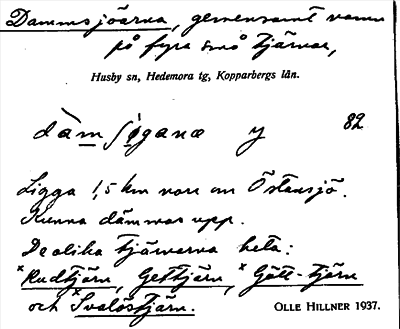 Dammsjöarna, gemensamt namn
på fyra små tjärnar,
Husby sn, Hedemora tg, Kopparbergs län.
dàmʃøganæ y 82
Ligga 1,5 km norr om Östansjö.
Kunna dämmas upp.
De olika tjärnarna heta:
×Rudtjärn, Gettjärn, ×Gått-tjärn
och ×Svalöstjärn.
OLLE HILLNER 1937.